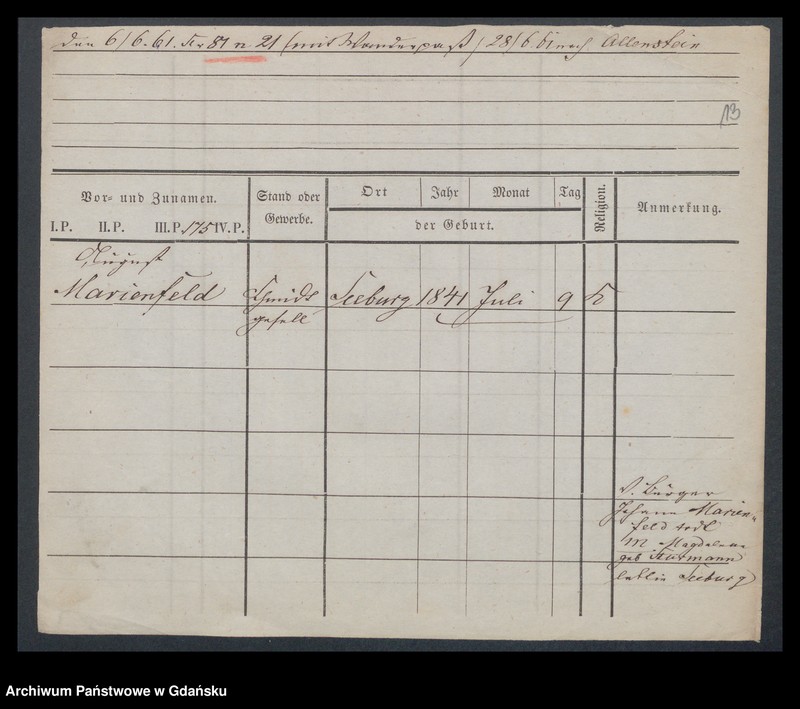 den 6/6.61. Nr 81 n 21 (mit Wanderpaß) 28/6.61 nach Allenstein
13
Vor- und Zunamen.
Stand oder
Gewerbe.
Ort
Jahr
Monat
Tag
Religion.
Anmerkung.
I. P. II. P. III. P. 175 IV. P.
der Geburt.
August
Marienfeld Schmidt Seeburg 1841 Juli 9 K
gesell
V. Bürger
Johann Marien-
feld todt
M Magdalena
geb
Seeburg
Archiwum Państwowe w Gdańsku